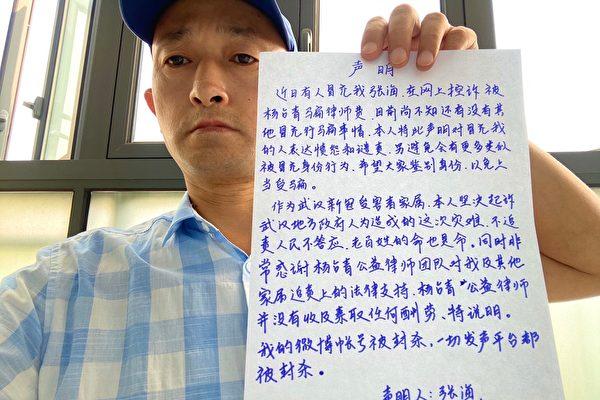 声明
近日有人冒充我张海,在网上控诉被
杨占青骗律师费,目前尚不知还有没有其
他冒充行骗事情。本人特此声明对冒充我
的人表达愤怒和谴责。另避免会有更多类似
被冒充身份行为,希望大家鉴别身份,以免上
当受骗。
作为武汉新冠受害者家属,本人坚决起诉
武汉地方政府人为造成的这次灾难,不追
责人民不答应,老百姓的命也是命。同时非
常感谢杨占青公益律师团队对我及其他
家属追责上的法律支持,杨占青"公益律师
并没有收及索取任何酬劳,特说明。
我的微博帐号被封杀,一切发声平台都
被封杀。
声明人:张海